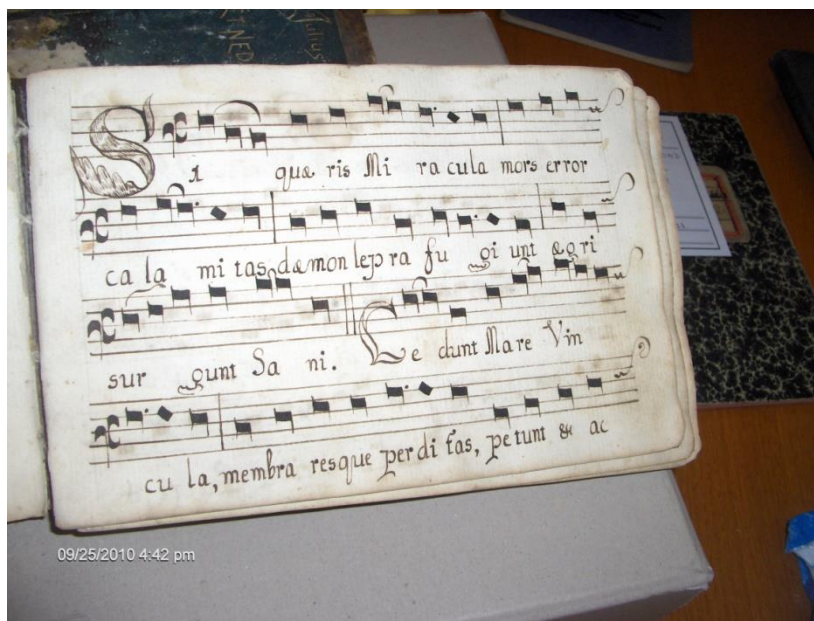 Si quæ ris Mi ra cula mors error
ca la mi tas dæmon lep ra fu gi unt ægri
sur gunt Sa ni. Ce dunt Mare Vin
cu la, membra resque perdi tas, petunt & ac
09/25/2010 4:42 pm